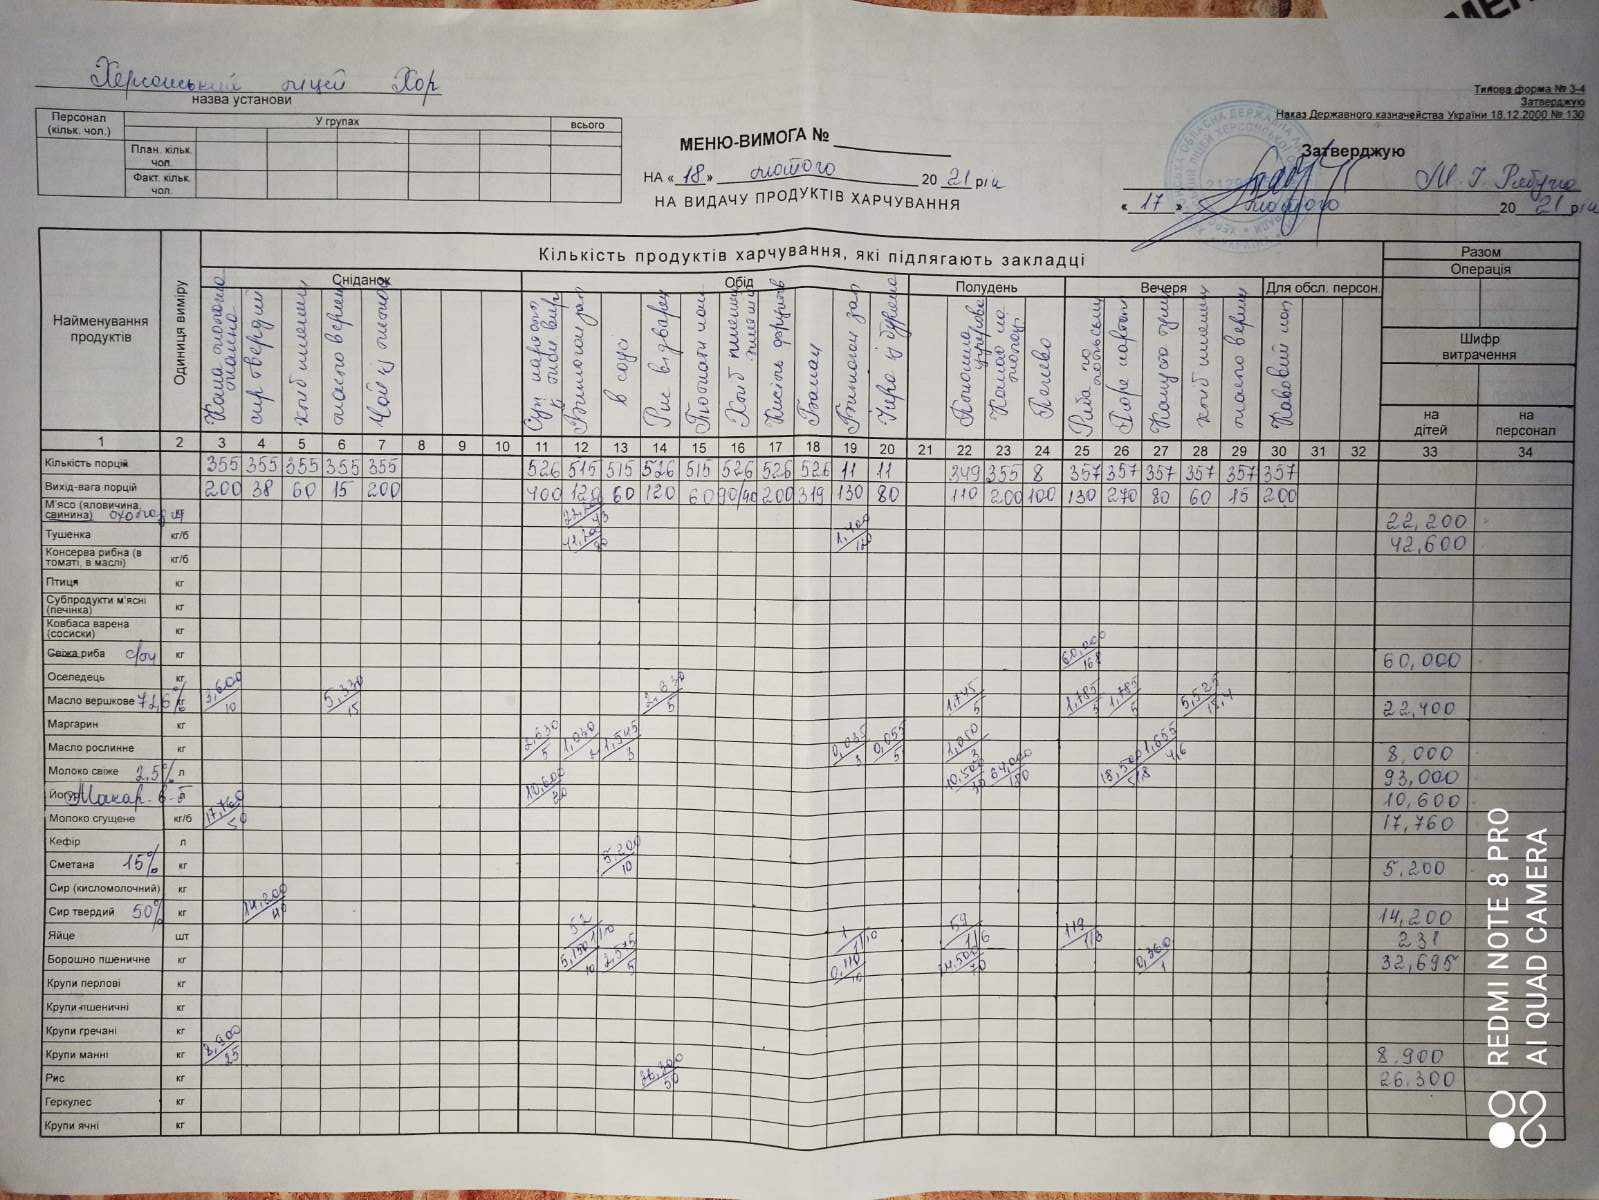 Херсонський ліцей ХОР
назва установи
Типова форма № 3-4
Затверджую
Наказ Державного казначейства України 18.12.2000 № 130
Персонал (кільк. чол.) У групах всього
План. кільк. чол.
Факт. кільк. чол.
МЕНЮ-ВИМОГА №
НА « 18 » лютого 20 21 р
НА ВИДАЧУ ПРОДУКТІВ ХАРЧУВАННЯ
Затверджую
« 17 » лютого 20 21 р
Найменування продуктів
Одиниця виміру
Кількість продуктів харчування, які підлягають закладці
Разом
Операція
Сніданок Обід Полудень Вечеря Для обсл. персон.
Шифр витрачення
на дітей на персонал
Каша молочна манна
сир твердий
хліб пшенич
масло вершк
Чай
Рис відварен
Банан
Какао на молоці
Печиво
Риба по польськи
Пюре картоп
хліб пшенич
масло верш
1 2 3 4 5 6 7 8 9 10 11 12 13 14 15 16 17 18 19 20 21 22 23 24 25 26 27 28 29 30 31 32 33 34
Кількість порцій 355 355 355 355 355 526 515 515 526 515 526 526 526 11 11 349 355 8 357 357 357 357 357 357
Вихід-вага порцій 200 38 60 15 200 400 120 60 120 60 90/40 200 319 130 80 110 200 100 130 270 80 60 15 200
М'ясо (яловичина, свинина) кг 22,200
Тушенка кг/б 42,600
Консерва рибна (в томаті, в маслі) кг/б
Птиця кг
Субпродукти м'ясні (печінка) кг
Ковбаса варена (сосиски) кг
Свіжа риба с/м кг 60,000/168 60,000
Оселедець кг
Масло вершкове 72,6% кг 3,600/10 5,330/15 2,630/5 1,745/5 1,785/5 1,785/5 22,400
Маргарин кг
Масло рослинне кг 2,630/5 1,030/2 1,545/3 0,035/3 0,055/5 1,050/3 1,655 8,000
Молоко свіже 2,5% л 10,500/30 64,000/180 18,500 93,000
Йогурт Макар. 10,600/20 10,600
Молоко сгущене кг/б 17,760/50 17,760
Кефір л
Сметана 15% кг 5,200/10 5,200
Сир (кисломолочний) кг
Сир твердий 50% кг 14,200/40 14,200
Яйце шт 52 1/10 1 1/10 59 1/6 119 231
Борошно пшеничне кг 5,150/10 2,575/5 0,110/10 24,500/70 0,360/1 32,695
Крупи перлові кг
Крупи пшеничні кг
Крупи гречані кг
Крупи манні кг 8,900/25 8.900
Рис кг 26,300/50 26.300
Геркулес кг
Крупи ячні кг
REDMI NOTE 8 PRO
AI QUAD CAMERA